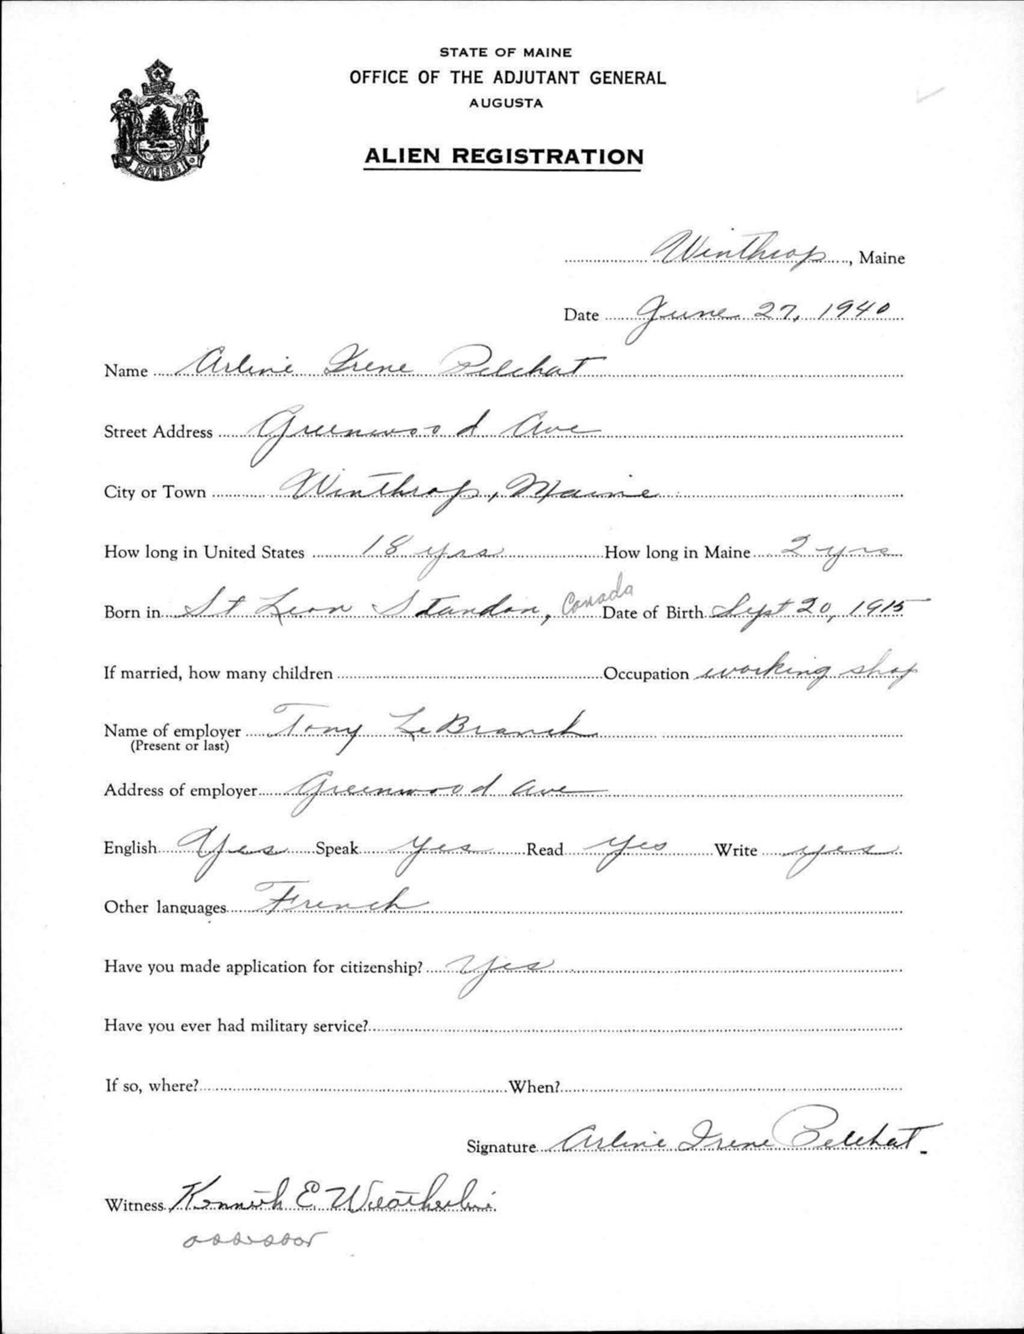 STATE OF MAINE
OFFICE OF THE ADJUTANT GENERAL
AUGUSTA
ALIEN REGISTRATION
MAINE
Winthrop, Maine
Date June 27, 1940
Name Arline Irene Pelchat
Street Address Greenwood Ave
City or Town Winthrop, Maine
How long in United States 18 yrs How long in Maine 2 yrs
Born in St Leon Standon, Canada Date of Birth Sept 20, 1915
If married, how many children Occupation working shop
Name of employer Tony LeBranch
(Present or last)
Address of employer Greenwood Ave
English Yes Speak Yes Read Yes Write yes
Other languages French
Have you made application for citizenship? Yes
Have you ever had military service?
If so, where? When?
Signature Arline Irene Pelchat
Witness Kenneth E
assessor